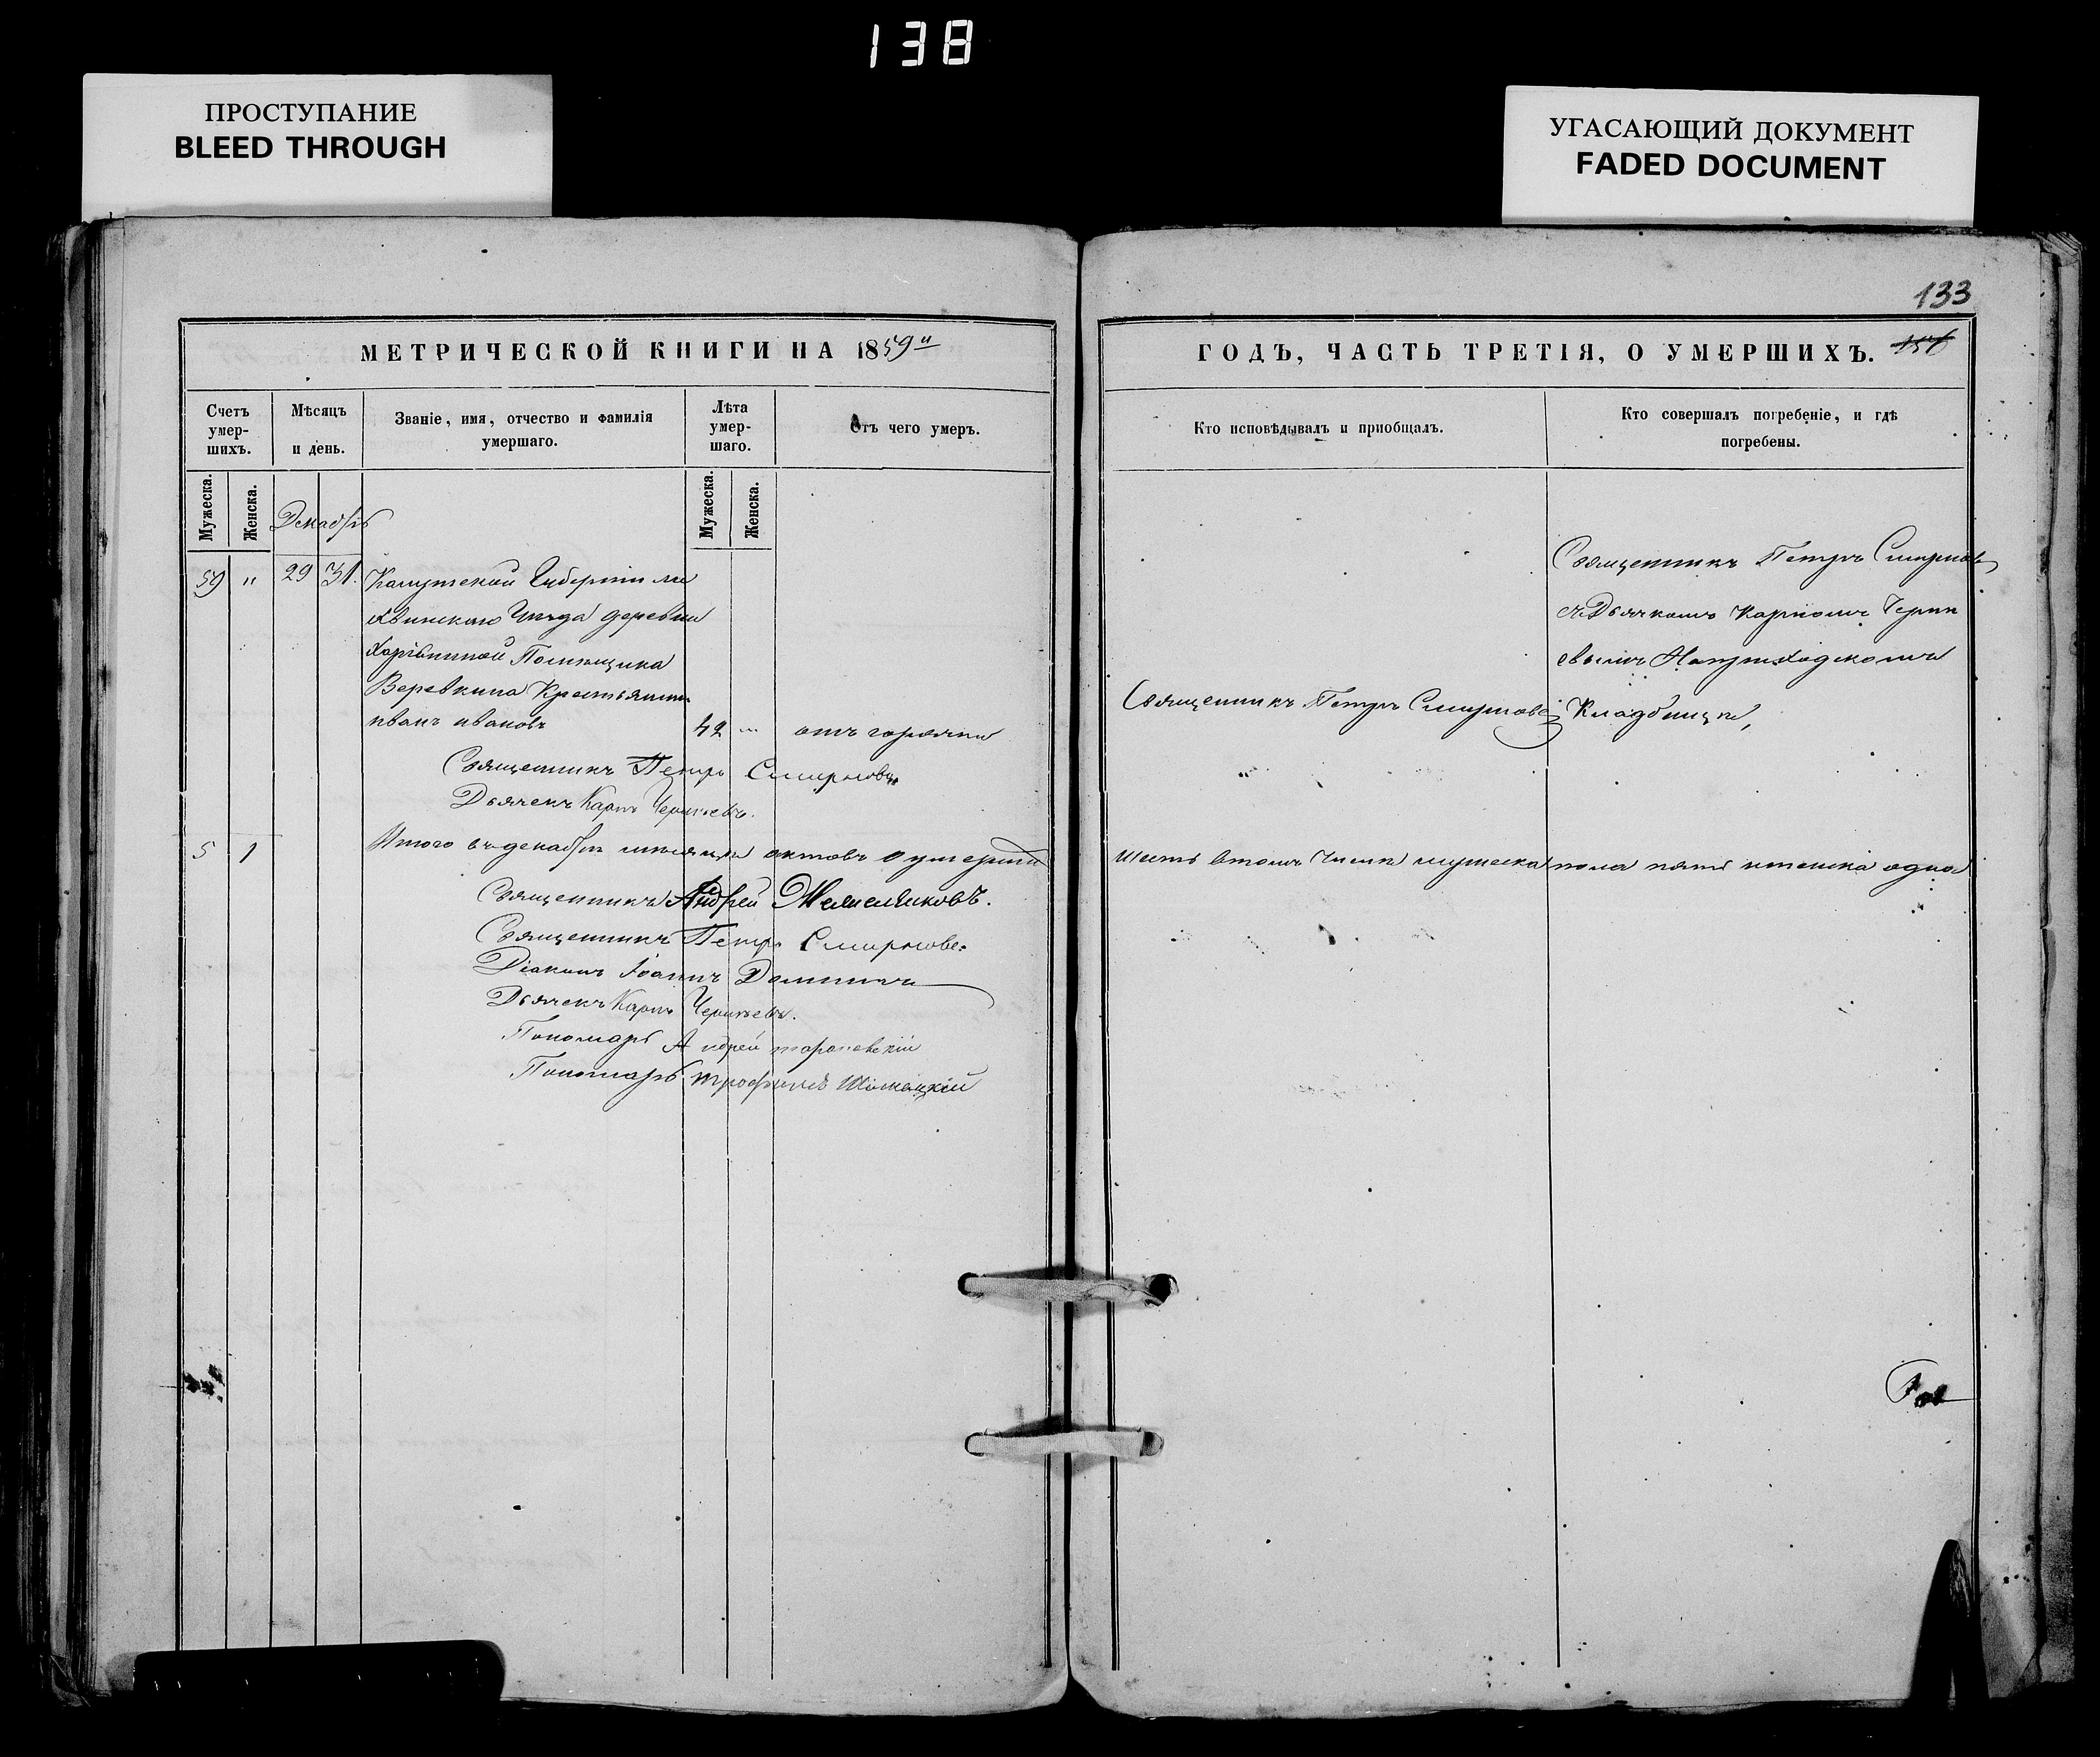 138
ПРОСТУПАНИЕ
BLEED THROUGH
УГАСАЮЩИЙ ДОКУМЕНТ
FADED DOCUMENT
МЕТРИЧЕСКОЙ КНИГИ НА 1859й
Счетъ умер-шихъ.
Мѣсяцъ и день.
Званіе, имя, отчество и фамилія умершаго.
Лѣта умер-шаго.
Отъ чего умеръ.
Мужеска.
Женска.
Мужеска.
Женска.
Декабрь
59 " 29 31. Калужской Губерніи ли
хвинскаго Уѣзда деревни
Помѣщика
Веревкина Крестьянинъ
иванъ ивановъ 42 " отъ горячки
Священникъ Петръ Смирновъ
Дьячекъ Карпъ Черняевъ.
5 1 Итого въ декабрѣ мѣсяцѣ актовъ о умерши
Священникъ Андрей
Священникъ Петръ Смирновъ.
Діаконъ Іоаннъ
Дьячекъ Карпъ Черняевъ.
Пономарь Андрей
Пономарь трофимъ
133
ГОДЪ, ЧАСТЬ ТРЕТІЯ, О УМЕРШИХЪ. 156
Кто исповѣдывалъ и пріобщалъ.
Кто совершалъ погребеніе, и гдѣ погребены.
Священникъ Петръ Смирновъ
съ Дьячкомъ Карпомъ Черня
евымъ На приходскомъ
Священникъ Петръ Смирновъ Кладбищѣ,
шесть втомъ Числѣ мужеска пола пять иженска одна